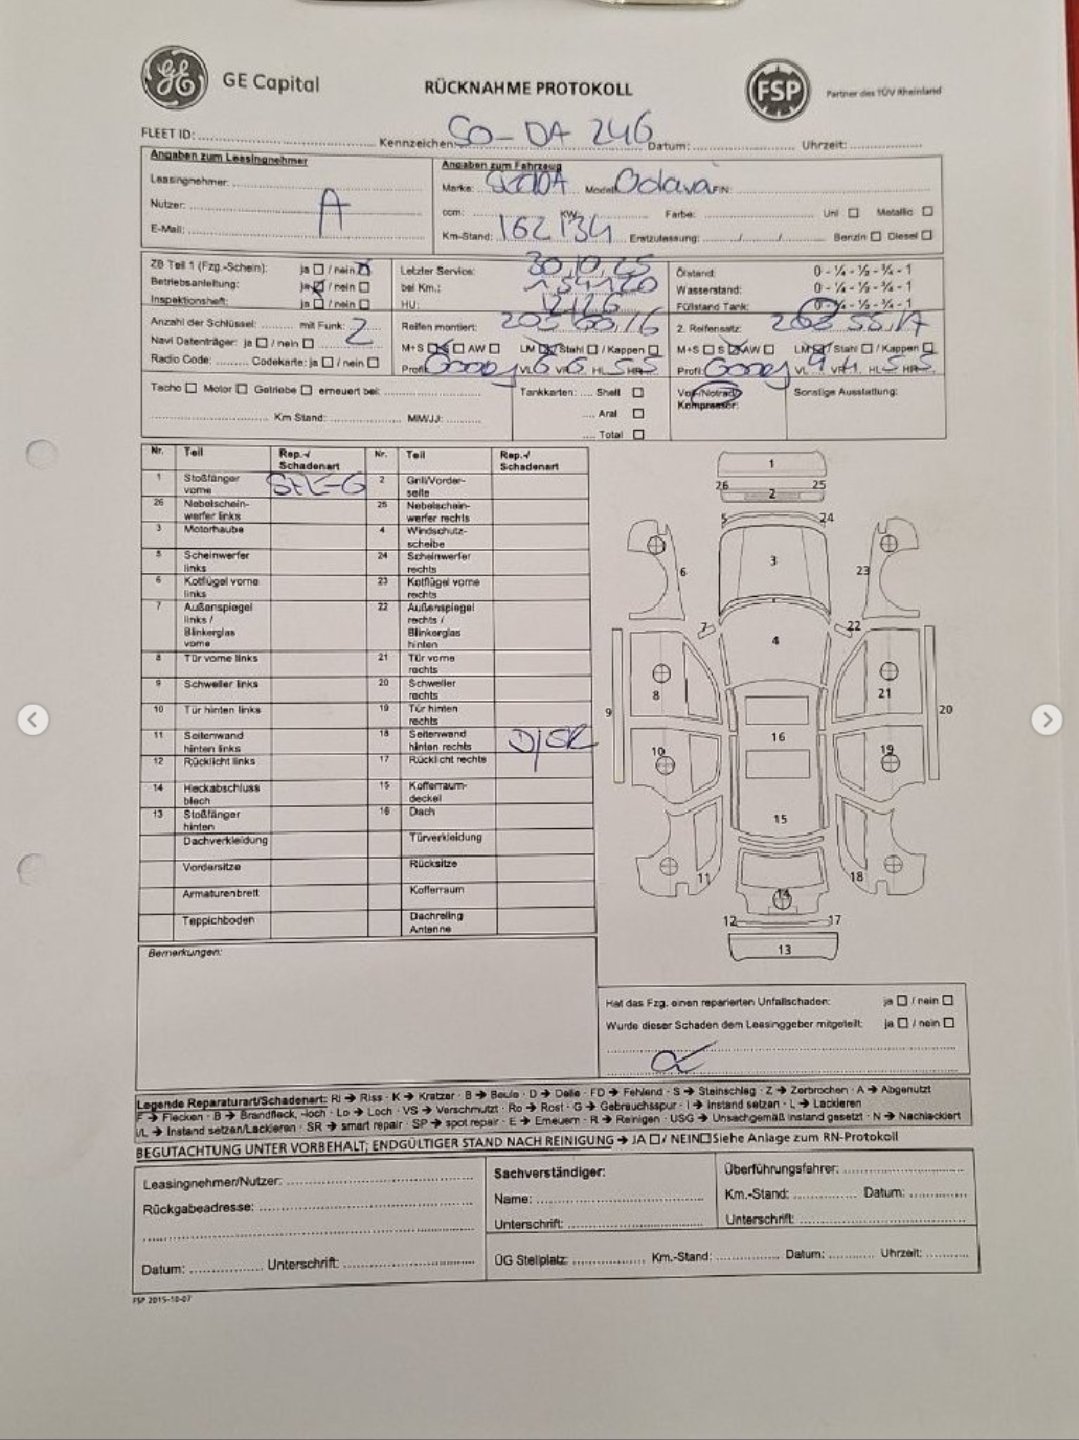 GE Capital
RÜCKNAHME PROTOKOLL
FSP
Partner des TÜV Rheinland
FLEET ID: Kennzeichen: SO-DA 246 Datum: Uhrzeit:
Angaben zum Leasingnehmer
Leasingnehmer:
Nutzer: A
E-Mail:
Angaben zum Fahrzeug
Marke: SKODA Modell: Octavia FIN:
ccm: KW: Farbe: Uni ☐ Metallic ☐
Km-Stand: 162134 Erstzulassung: ..../..../.... Benzin ☐ Diesel ☐
ZB Teil 1 (Fzg.-Schein): ja ☐ / nein ☒
Betriebsanleitung: ja ☒ / nein ☐
Inspektionsheft: ja ☐ / nein ☐
Letzter Service: 30.10.25
bei Km.: 154120
HU: 12/26
Ölstand: 0 - ¼ - ½ - ¾ - 1
Wasserstand: 0 - ¼ - ½ - ¾ - 1
Füllstand Tank: 0 - ¼ - ½ - ¾ - 1
Anzahl der Schlüssel: mit Funk: 2
Navi Datenträger: ja ☐ / nein ☐
Radio Code: Codekarte: ja ☐ / nein ☐
Reifen montiert: 205 60 16
M+S ☒ S ☐ AW ☐ LM ☒ Stahl ☐ / Kappen ☐
Profil VL 6 VR 6 HL 5 HR 5
2. Reifensatz: 55 17
M+S ☐ S ☒ AW ☐ LM ☒ Stahl ☐ / Kappen ☐
Profil: VL 4 VR 4 HL 5 HR 5
Tacho ☐ Motor ☐ Getriebe ☐ erneuert bei:
Km Stand: MM/JJ:
Tankkarten: Shell ☐
Aral ☐
Total ☐
Voll-/Notrad/
Kompressor:
Sonstige Ausstattung:
Nr. Teil Rep.-/ Schadenart Nr. Teil Rep.-/ Schadenart
1 Stoßfänger vorne STL-G 2 Grill/Vorder- seite
26 Nebelschein- werfer links 25 Nebelschein- werfer rechts
3 Motorhaube 4 Windschutz- scheibe
5 Scheinwerfer links 24 Scheinwerfer rechts
6 Kotflügel vorne links 23 Kotflügel vorne rechts
7 Außenspiegel links / Blinkerglas vorne 22 Außenspiegel rechts / Blinkerglas hinten
8 Tür vorne links 21 Tür vorne rechts
9 Schweller links 20 Schweller rechts
10 Tür hinten links 19 Tür hinten rechts
11 Seitenwand hinten links 18 Seitenwand hinten rechts D/SR
12 Rücklicht links 17 Rücklicht rechts
14 Heckabschluss blech 15 Kofferraum- deckel
13 Stoßfänger hinten 16 Dach
Dachverkleidung Türverkleidung
Vordersitze Rücksitze
Armaturenbrett Kofferraum
Teppichboden Dachreling Antenne
1
26 2 25
5 24
6 3 23
7 4 22
8 21
9 20
10 16 19
15
11 14 18
12 17
13
Bemerkungen:
Hat das Fzg. einen reparierten Unfallschaden: ja ☐ / nein ☐
Wurde dieser Schaden dem Leasinggeber mitgeteilt: ja ☐ / nein ☐
Legende Reparaturart/Schadenart: RI → Riss · K → Kratzer · B → Beule · D → Delle · FD → Fehlend · S → Steinschlag · Z → Zerbrochen · A → Abgenutzt
F → Flecken · B → Brandfleck, -loch · Lo → Loch · VS → Verschmutzt · Ro → Rost · G → Gebrauchsspur · I → Instand setzen · L → Lackieren
I/L → Instand setzen/Lackieren · SR → smart repair · SP → spot repair · E → Erneuern · R → Reinigen · USG → Unsachgemäß instand gesetzt · N → Nachlackiert
BEGUTACHTUNG UNTER VORBEHALT; ENDGÜLTIGER STAND NACH REINIGUNG → JA ☐ / NEIN ☐ Siehe Anlage zum RN-Protokoll
Leasingnehmer/Nutzer:
Rückgabeadresse:
Datum: Unterschrift:
Sachverständiger:
Name:
Unterschrift:
Überführungsfahrer:
Km.-Stand: Datum:
Unterschrift:
ÜG Stellplatz: Km.-Stand: Datum: Uhrzeit:
FSP 2015-10-07